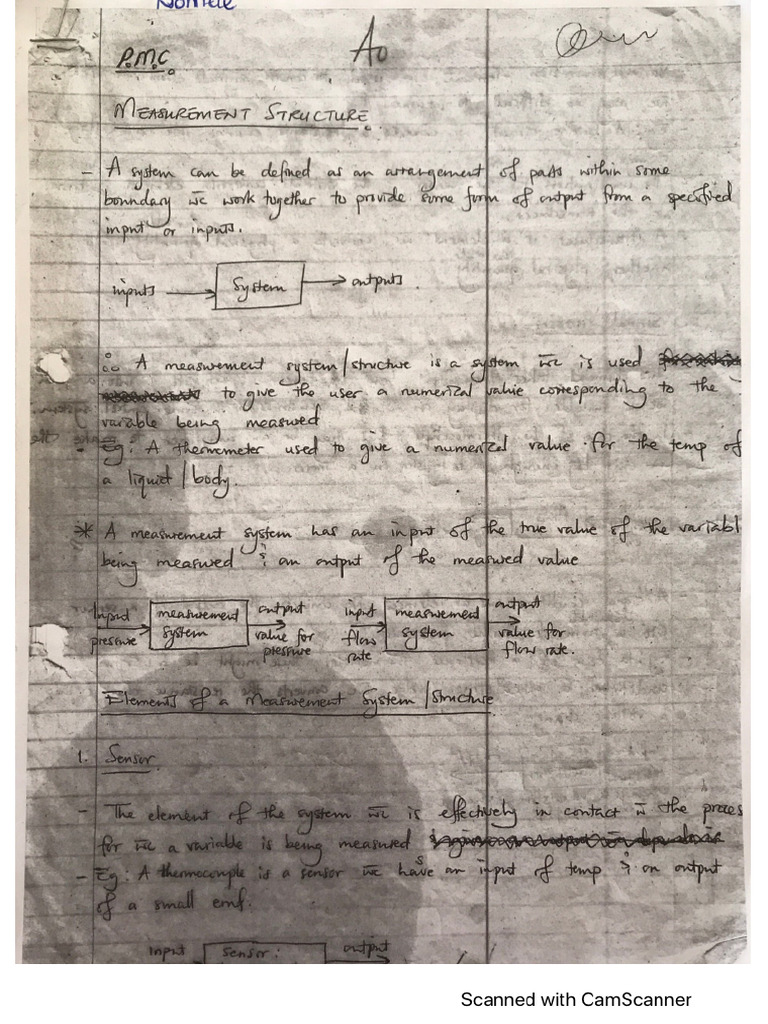 P.M.C.
A0
MEASUREMENT STRUCTURE.
- A system can be defined as an arrangement of parts within some
boundary w̄c work together to provide some form of output from a specified
input or inputs.
inputs → System → outputs.
∴ A measurement system/structure is a system w̄c is used
to give the user a numerical value corresponding to the
variable being measured
- Eg: A thermometer used to give a numerical value for the temp of
a liquid/body.
* A measurement system has an input of the true value of the variabl
being measured & an output of the measured value
Input pressure → measurement system → output value for pressure
input flow rate → measurement system → output value for flow rate.
Elements of a Measurement System/Structure
1. Sensor.
- The element of the system w̄c is effectively in contact w̄ the proces
for w̄c a variable is being measured
- Eg: A thermocouple is a sensor w̄c has an input of temp & an output
of a small emf.
Input sensor: output
Scanned with CamScanner